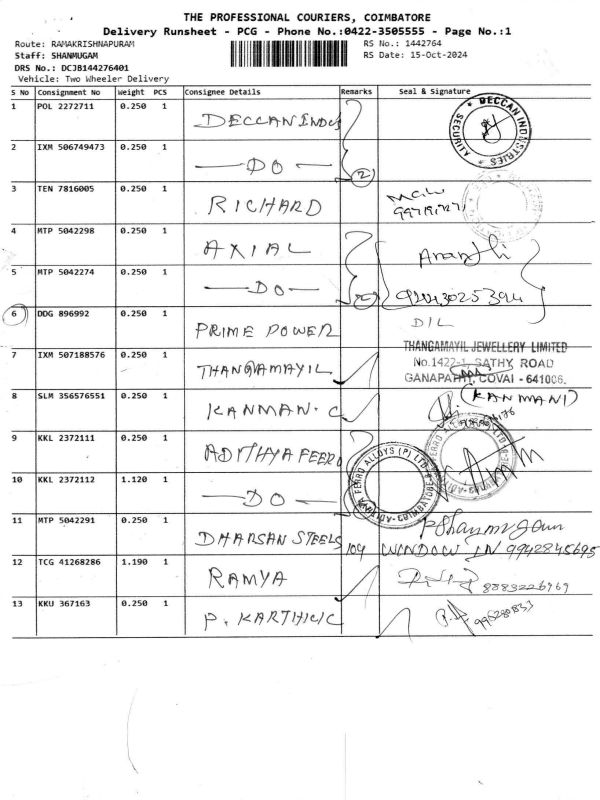 THE PROFESSIONAL COURIERS, COIMBATORE
Delivery Runsheet - PCG - Phone No.:0422-3505555 - Page No.:1
Route: RAMAKRISHNAPURAM
RS No.: 1442764
Staff: SHANMUGAM
RS Date: 15-Oct-2024
DRS No.: DCJB144276401
Vehicle: Two Wheeler Delivery
S No Consignment No Weight PCS Consignee Details Remarks Seal & Signature
1 POL 2272711 0.250 1 DECCAN INDUS
DECCAN INDUSTRIES
SECURITY
2 IXM 506749473 0.250 1 —DO— 2
3 TEN 7816005 0.250 1 RICHARD
4 MTP 5042298 0.250 1 AXIAL
5 MTP 5042274 0.250 1 —DO—
6 DDG 896992 0.250 1 PRIME POWER
7 IXM 507188576 0.250 1 THANGAMAYIL
THANGAMAYIL JEWELLERY LIMITED
No.1422-1, SATHY ROAD
GANAPATHY, COVAI - 641006.
8 SLM 356576551 0.250 1 KANMAN.C (KANMANI)
9 KKL 2372111 0.250 1 ADITHYA FEERO
10 KKL 2372112 1.120 1 —DO—
FERRO ALLOYS (P) LTD
COIMBATORE
11 MTP 5042291 0.250 1 DHARSAN STEELS 104 WINDOW IN 9942845695
12 TCG 41268286 1.190 1 RAMYA 8883226969
13 KKU 367163 0.250 1 P. KARTHICK